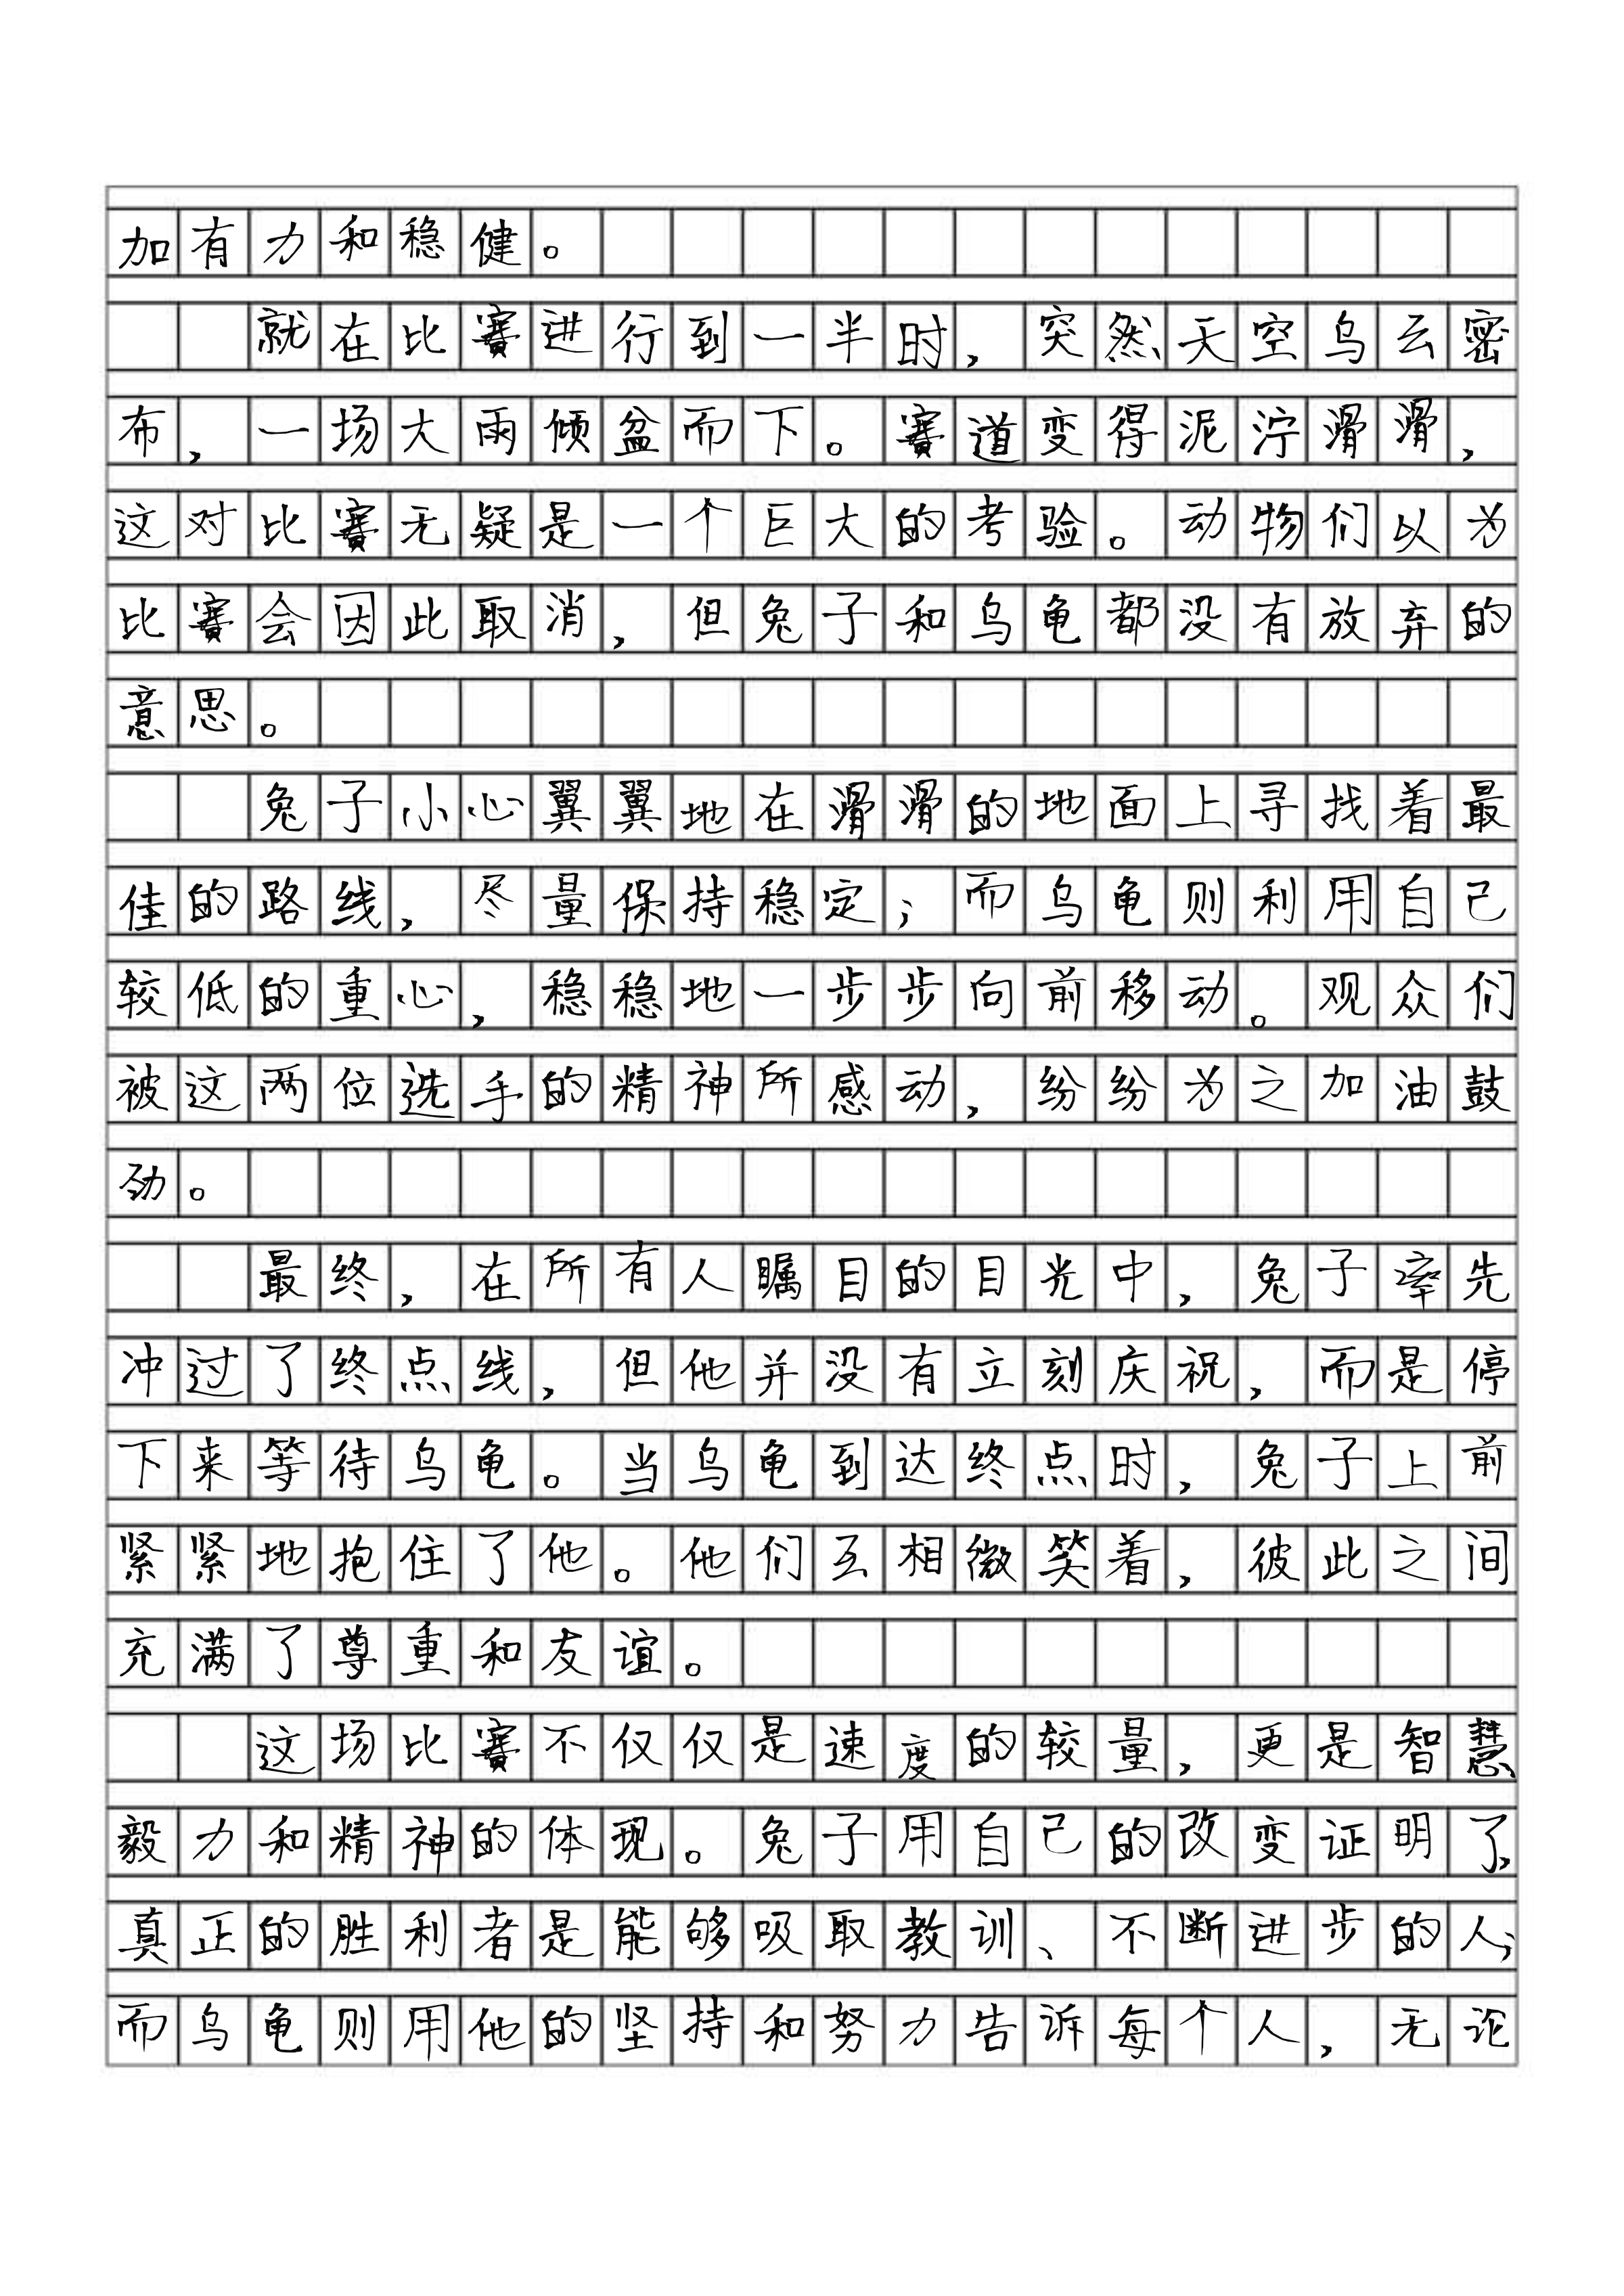 加有力和稳健。
就在比赛进行到一半时，突然天空乌云密
布，一场大雨倾盆而下。赛道变得泥泞滑滑，
这对比赛无疑是一个巨大的考验。动物们以为
比赛会因此取消，但兔子和乌龟都没有放弃的
意思。
兔子小心翼翼地在滑滑的地面上寻找着最
佳的路线，尽量保持稳定；而乌龟则利用自己
较低的重心，稳稳地一步步向前移动。观众们
被这两位选手的精神所感动，纷纷为之加油鼓
劲。
最终，在所有人瞩目的目光中，兔子率先
冲过了终点线，但他并没有立刻庆祝，而是停
下来等待乌龟。当乌龟到达终点时，兔子上前
紧紧地抱住了他。他们互相微笑着，彼此之间
充满了尊重和友谊。
这场比赛不仅仅是速度的较量，更是智慧、
毅力和精神的体现。兔子用自己的改变证明了，
真正的胜利者是能够吸取教训、不断进步的人；
而乌龟则用他的坚持和努力告诉每个人，无论